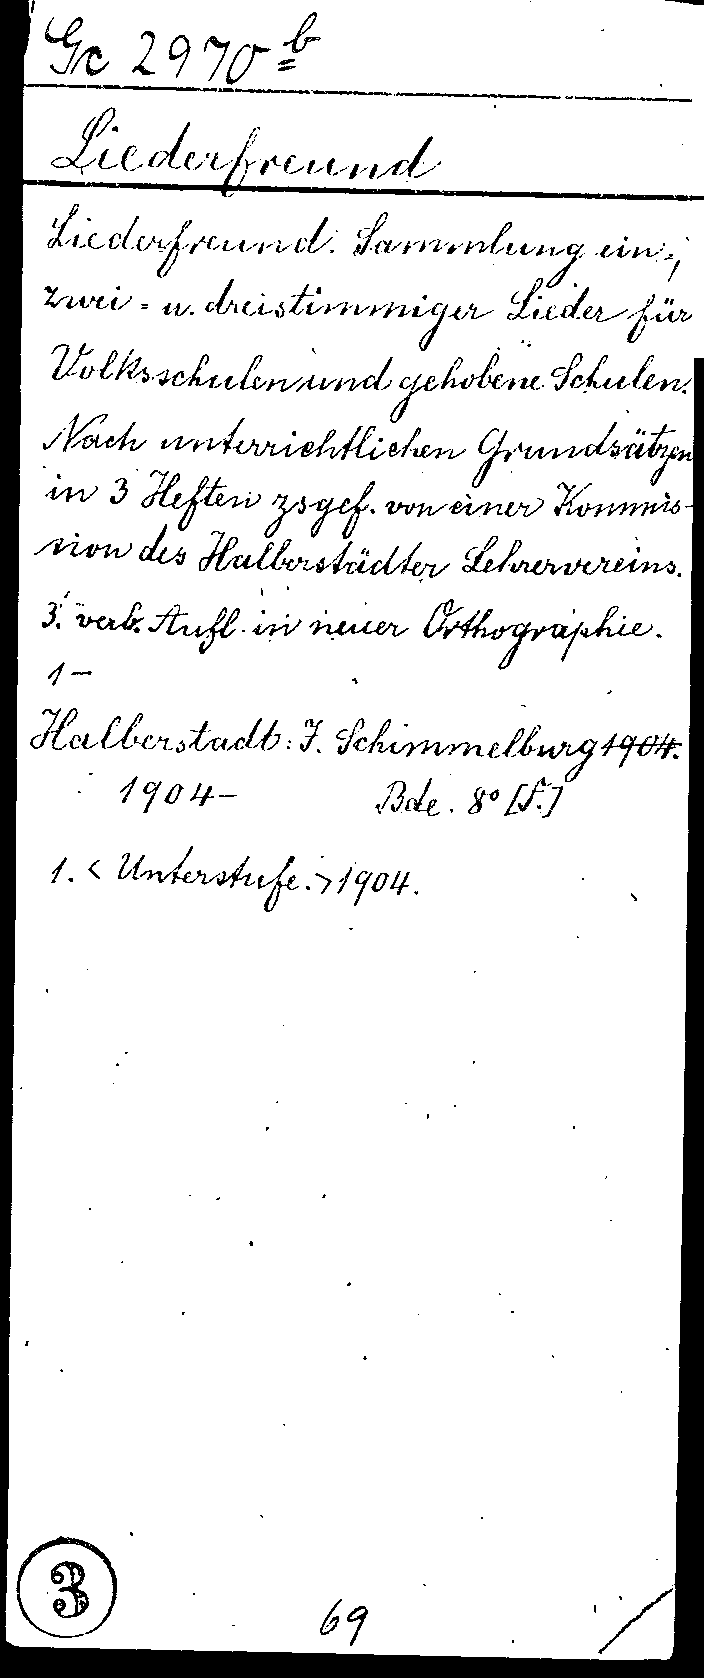 Gc 2970 b
Liederfreund
Liederfreund. Sammlung ein-,
zwei- u. dreistimmiger Lieder für
Volksschulen und gehobene Schulen.
Nach unterrichtlichen Grundsätzen
in 3 Heften zsgef. von einer Kommis-
sion des Halberstädter Lehrervereins.
3. verb. Aufl. in neuer Orthographie.
1-
Halberstadt: J. Schimmelburg 1904.
1904- Bde. 8° [f.]
1. < Unterstufe. > 1904.
3
69